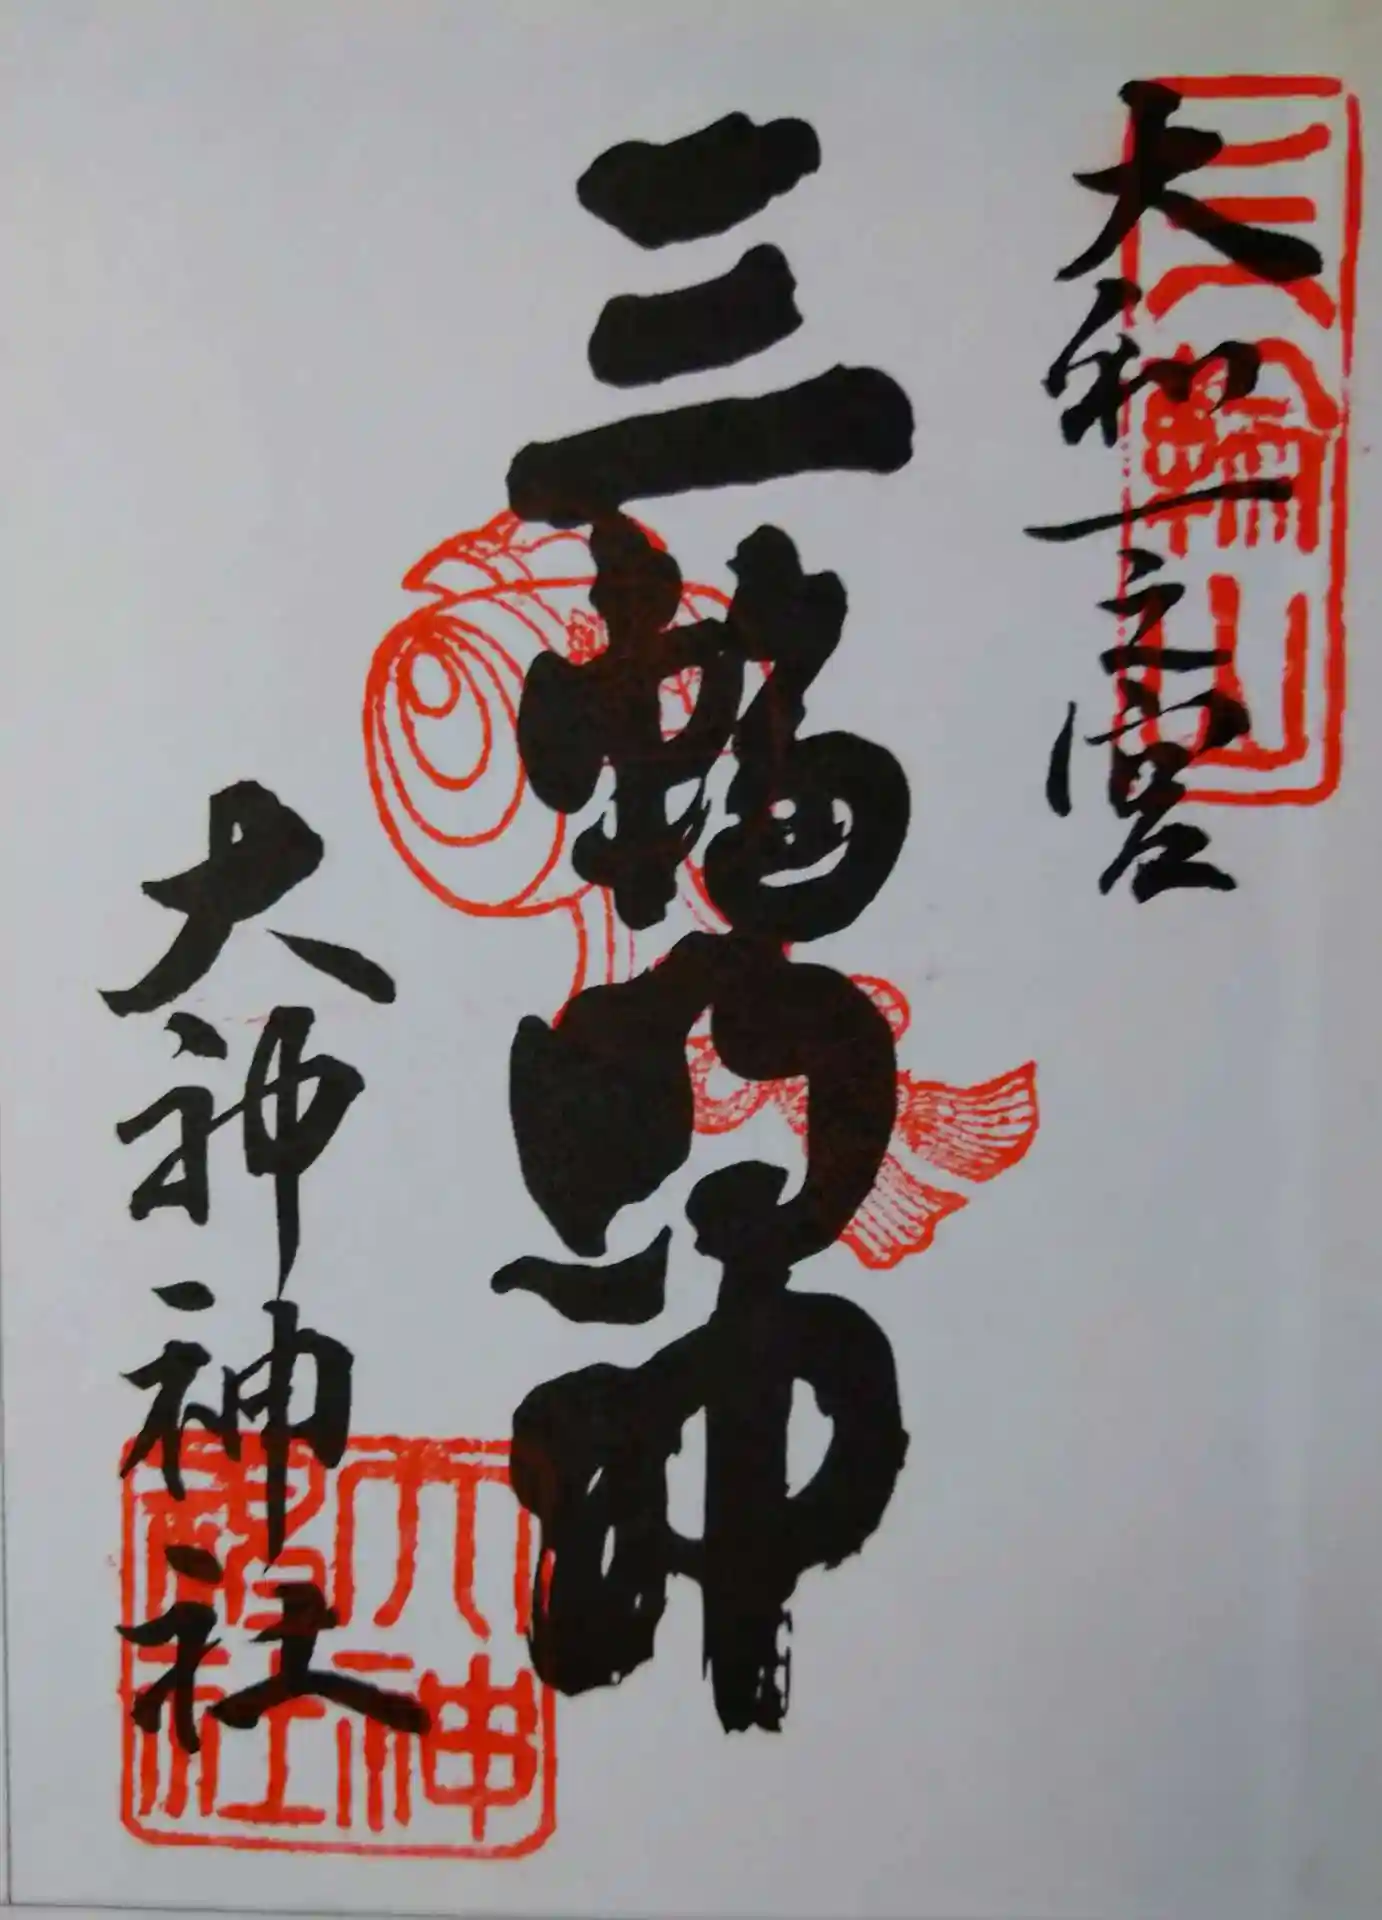 大和一之宮
三輪山
三輪明神
大神神社
大神
神社